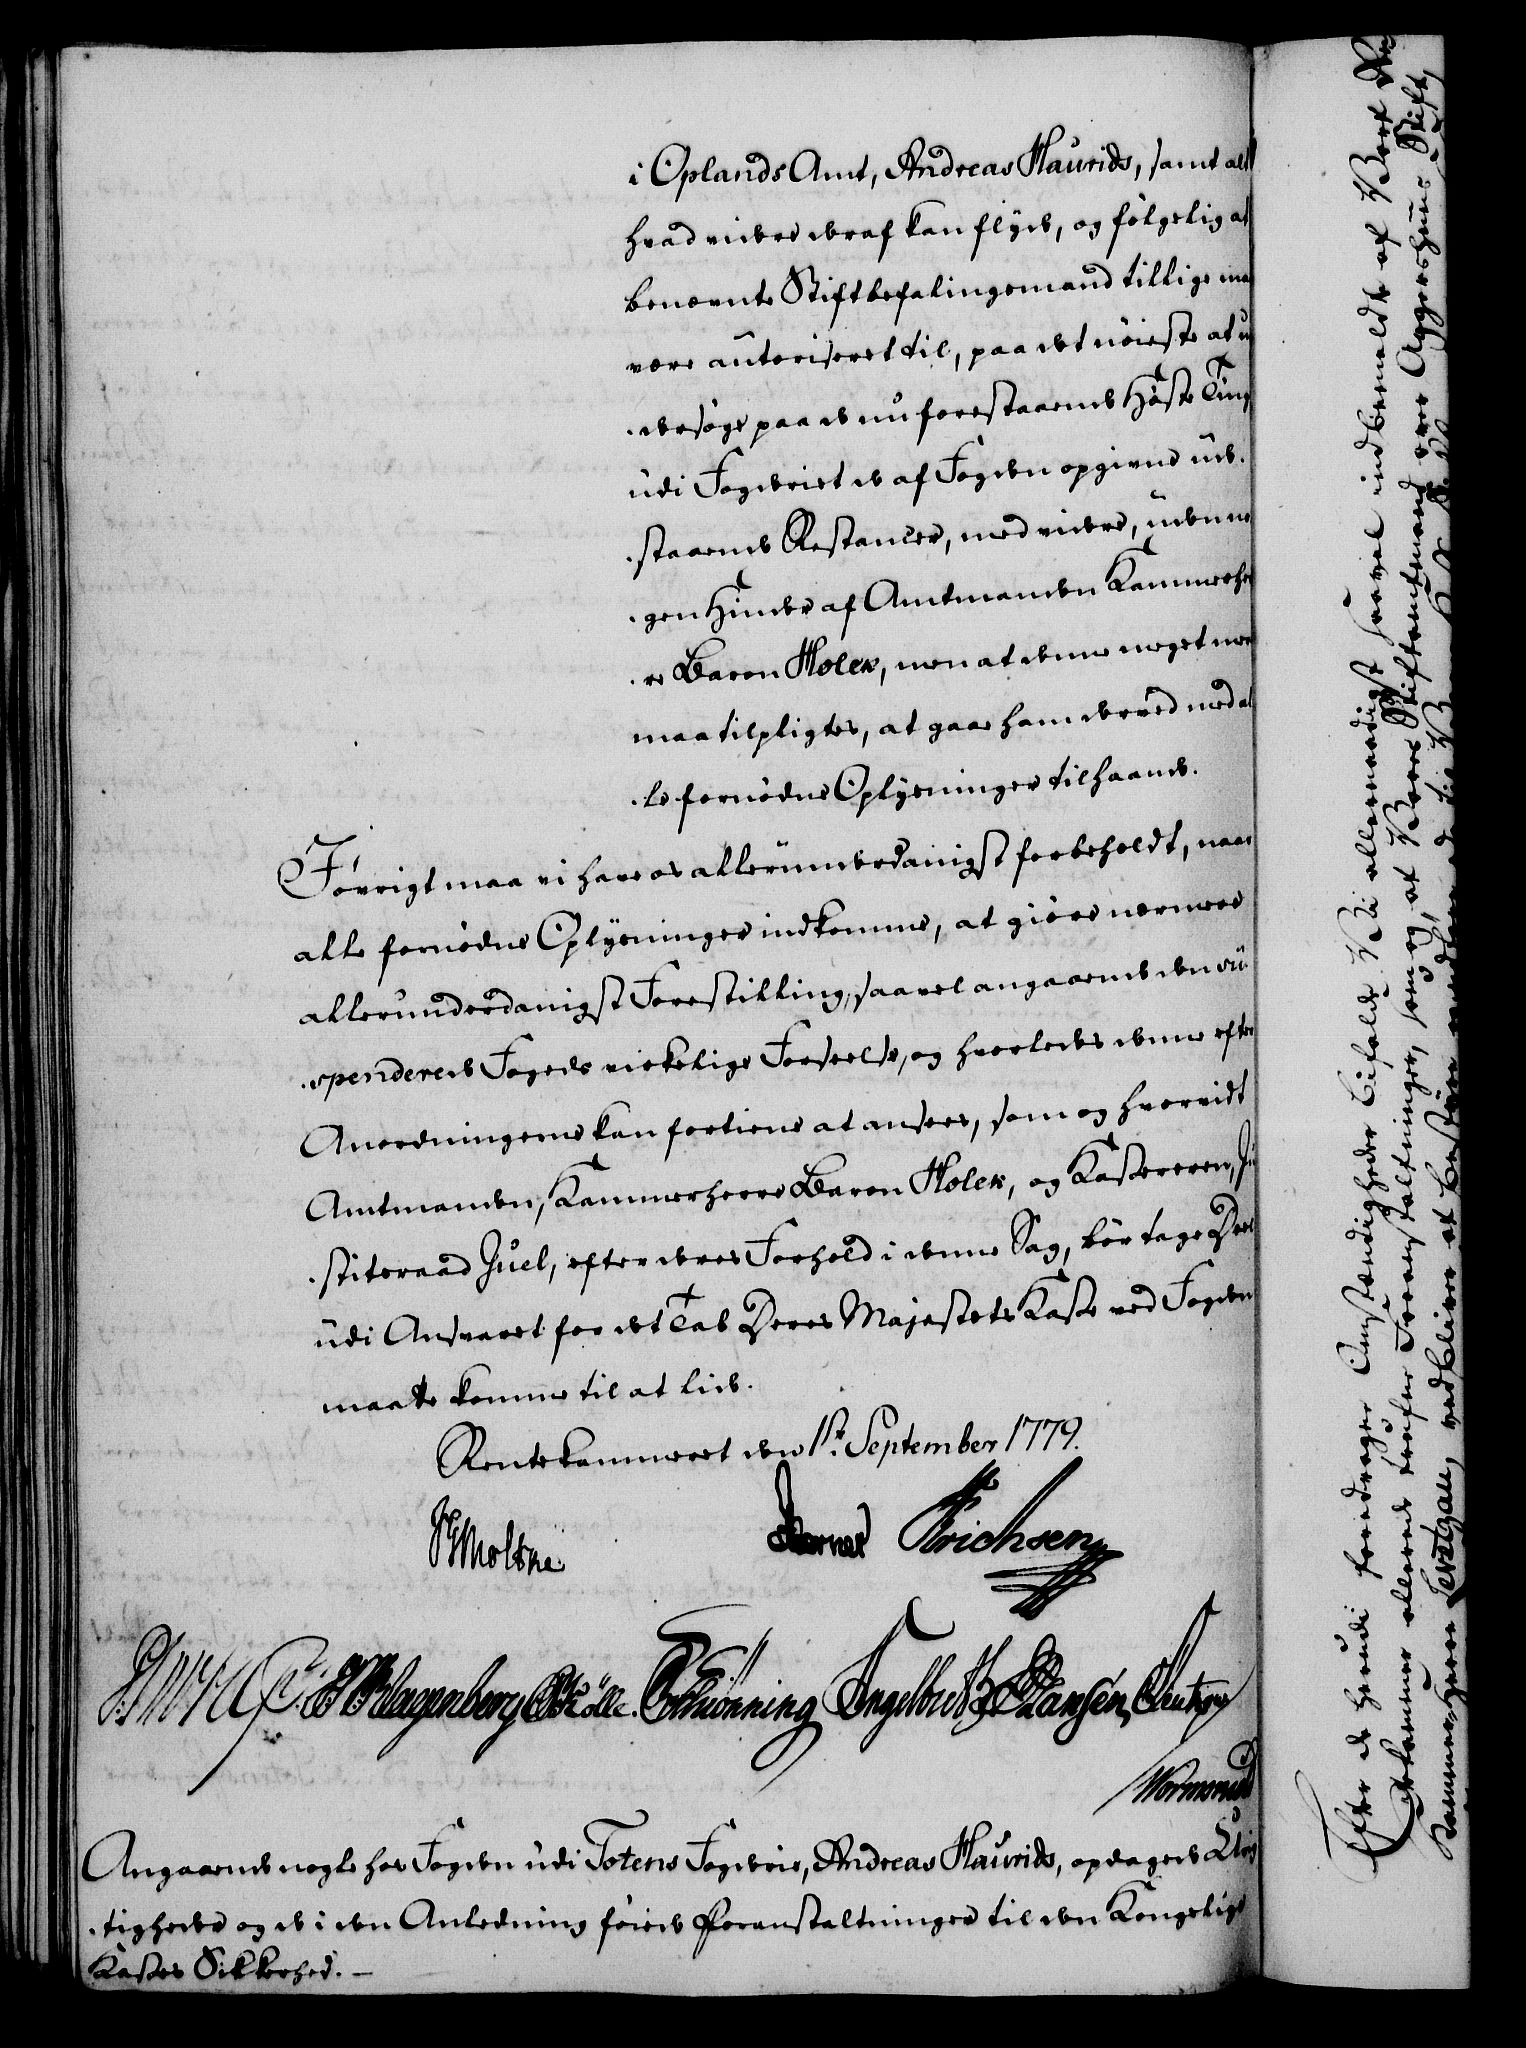 i Oplands Amt, Andreas Haurids, samt alt
hvad videre deraf kan flyde, og følgelig at
benævnte Stiftbefalingsmand tillige maa
være autoriseret til, paa det nøieste at un
-dersøge paa de nu forestaaende Høste Ting
udi Fogderiet de af Fogden opgivne ude-
-staaende Restancer, med videre, uden no
-gen Hinder af Amtmanden Kammerher
-re Baron Holck, men at denne meget mere
maa tilpligtes, at gaae ham derved med al
-le fornødne Oplysninger tilhaande.
Iøvrigt maa vi have os allerunderdanigst forbeholdt, naar
alle fornødne Oplysninger indkomme, at giøre nærmere
allerunderdanigst Forestilling, saavel angaaende den su-
-spenderede Fogeds virkelige Forseelse, og hvorledes denne efter
Anordningerne kan fortiene at ansees, som og hvorvidt
Amtmanden, Kammerherre Baron Holck, og Kassereren, Ju
-stiteraad Juel, efter deres Forhold i denne Sag, bør tage Deel
udi Ansvaret for det Tab Deres Majestets Kasse ved Fogden
maatte komme til at lide.
Rentekammeret den 1ste September 1779.
JGMoltke Skernes Erichsen
Klagenberg Schiønning Engelbret Hansen
Wormskiold
Angaaende nogle hos Fogden udi Totens Fogderie, Andreas Haurids, opdagede Urig
-tigheder og de i den Anledning føiede Foranstaltninger til den Kongelige
Kasses Sikkerhed. -
Efter de herudi foredragne Omstændigheder bifalde Vi allernaadigst saavel indbemeldte af Vort Ren
tekammer allerede trufne Foranstaltninger, som og, at Vores Stiftamtmand over Aggershuus Stift,
Kammerherre Levetzau, vedbliver at